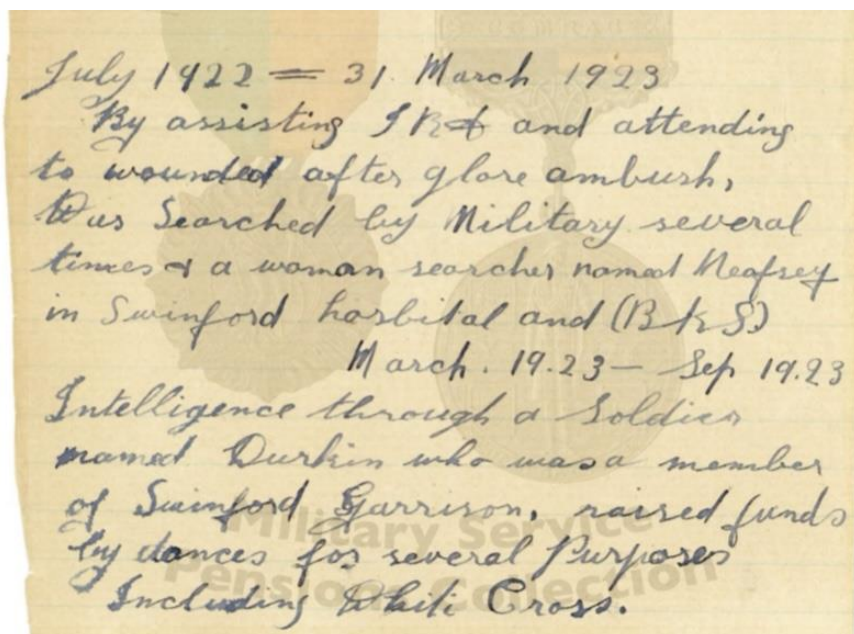 July 1922 = 31. March 1923
By assisting IRA and attending
to wounded after glore ambush,
Was Searched by Military several
times & a woman searcher named Neafsey
in Swinford hosbital and (BKS)
March. 19.23 - Sep 19.23
Intelligence through a Soldier
named Durkin who was a member
of Swinford Garrison, raised funds
by dances for several Purposes
Including White Cross.
Military Service
Pensions Collection